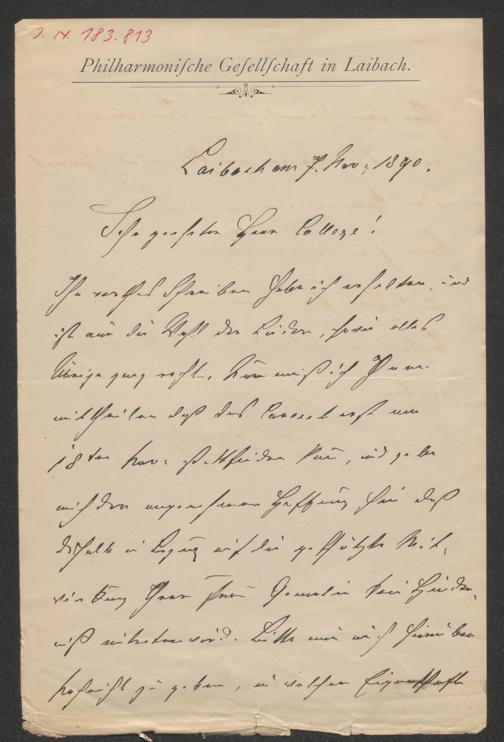 J. N. 183.813
Philharmonische Gesellschaft in Laibach.
Laibach am 7. Nov. 1890.
Sehr geehrter Herr College!
Ihr werthes Schreiben habe ich erhalten, und
ist mir die Wahl der Lieder, sowie alles
Übrige ganz recht. Nur muß ich Ihnen
mittheilen daß das Concert erst am
18ten Nov. stattfinden kann, und gebe
mich der angenehmen Hoffnung hin daß
deshalb in Bezug auf die geschätzte Mit-
wirkung Ihrer Frau Gemalin kein Hinder-
niß eintreten wird. Bitte mir auch hierüber
Nachricht zu geben, in welcher Eigenschaft